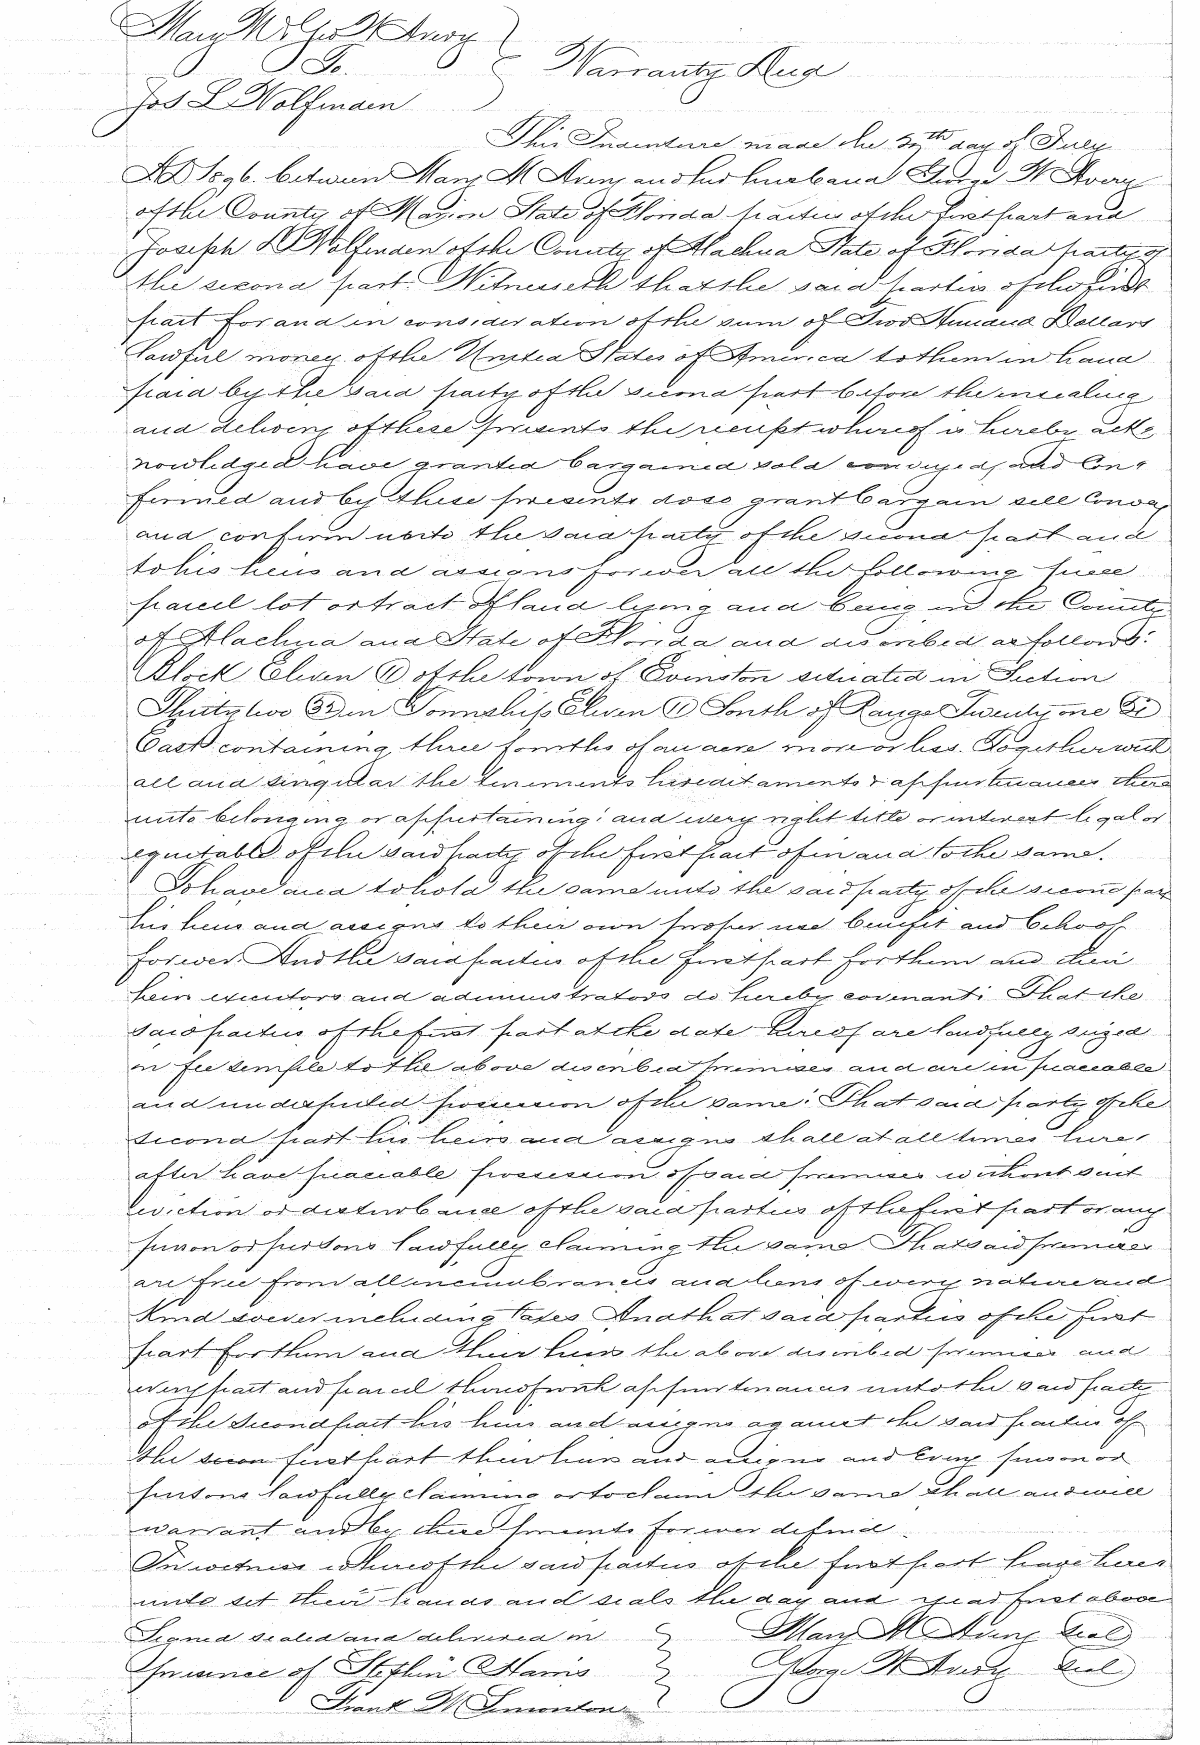 Mary M & Geo W Avery
To
Warranty Deed
Jos L Wolfenden
This Indenture made the day of July
AD 1896. between Mary M Avery and her husband George W Avery
of the County of Marion State of Florida parties of the first part and
Joseph L Wolfenden of the County of Alachua State of Florida party of
the second part. Witnesseth that the said parties of the first
part for and in consideration of the sum of Two Hundred Dollars
lawful money of the United States of America to them in hand
paid by the said party of the second part before the ensealing
and delivery of these presents the receipt whereof is hereby ack-
nowledged have granted bargained sold conveyed and Con-
firmed and by these presents does grant bargain sell Convey
and confirm unto the said party of the second part and
to his heirs and assigns forever all the following piece
parcel lot or tract of land lying and being in the County
of Alachua and State of Florida and described as follows:
Block Eleven (11) of the town of Evinston situated in Section
Thirty two (32) in Township Eleven (11) South of Range Twenty one (21)
East containing three fourths of an acre more or less. Together with
all and singular the tenements hereditaments & appurtenances there
unto belonging or appertaining: and every right title or interest legal or
equitable of the said party of the first part of in and to the same.
To have and to hold the same unto the said party of the second part
his heirs and assigns to their own proper use benefit and behoof
forever. And the said parties of the first part for them and their
heirs executors and administrators do hereby covenant: That the
said parties of the first part at the date hereof are lawfully seized
in fee simple to the above described premises and are in peaceable
and undisputed possession of the same: That said party of the
second part his heirs and assigns shall at all times here-
after have peaceable possession of said premises without suit
eviction or disturbance of the said parties of the first part or any
person or persons lawfully claiming the same That said premises
are free from all incumbrances and liens of every nature and
Kind soever including taxes And that said parties of the first
part for them and their heirs the above described premises and
every part and parcel thereof with appurtenances unto the said party
of the second part his heirs and assigns against the said parties of
the secon first part their heirs and assigns and every person or
persons lawfully claiming or to claim the same shall and will
warrant and by these presents forever defend.
In witness whereof the said parties of the first part have here-
unto set their hands and seals the day and year first above
Signed sealed and delivered in Mary M Avery Seal
presence of Harris George W Avery Seal
Frank W Simonton